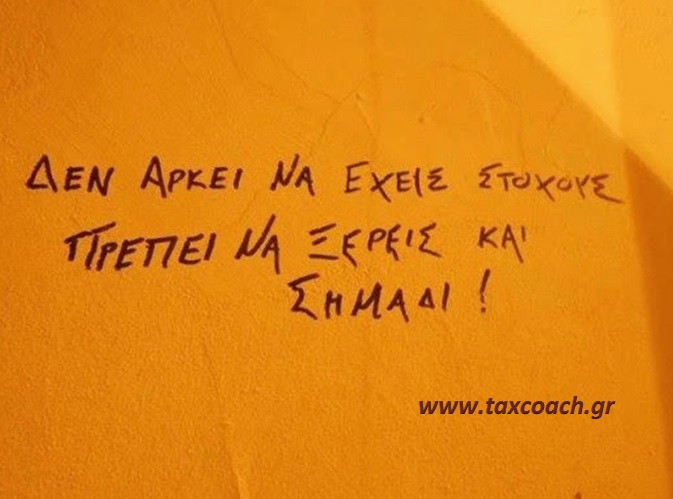 ΔΕΝ ΑΡΚΕΙ ΝΑ ΕΧΕΙΣ ΣΤΟΧΟΥΣ
ΠΡΕΠΕΙ ΝΑ ΞΕΡΕΙΣ ΚΑΙ
ΣΗΜΑΔΙ!
www.taxcoach.gr